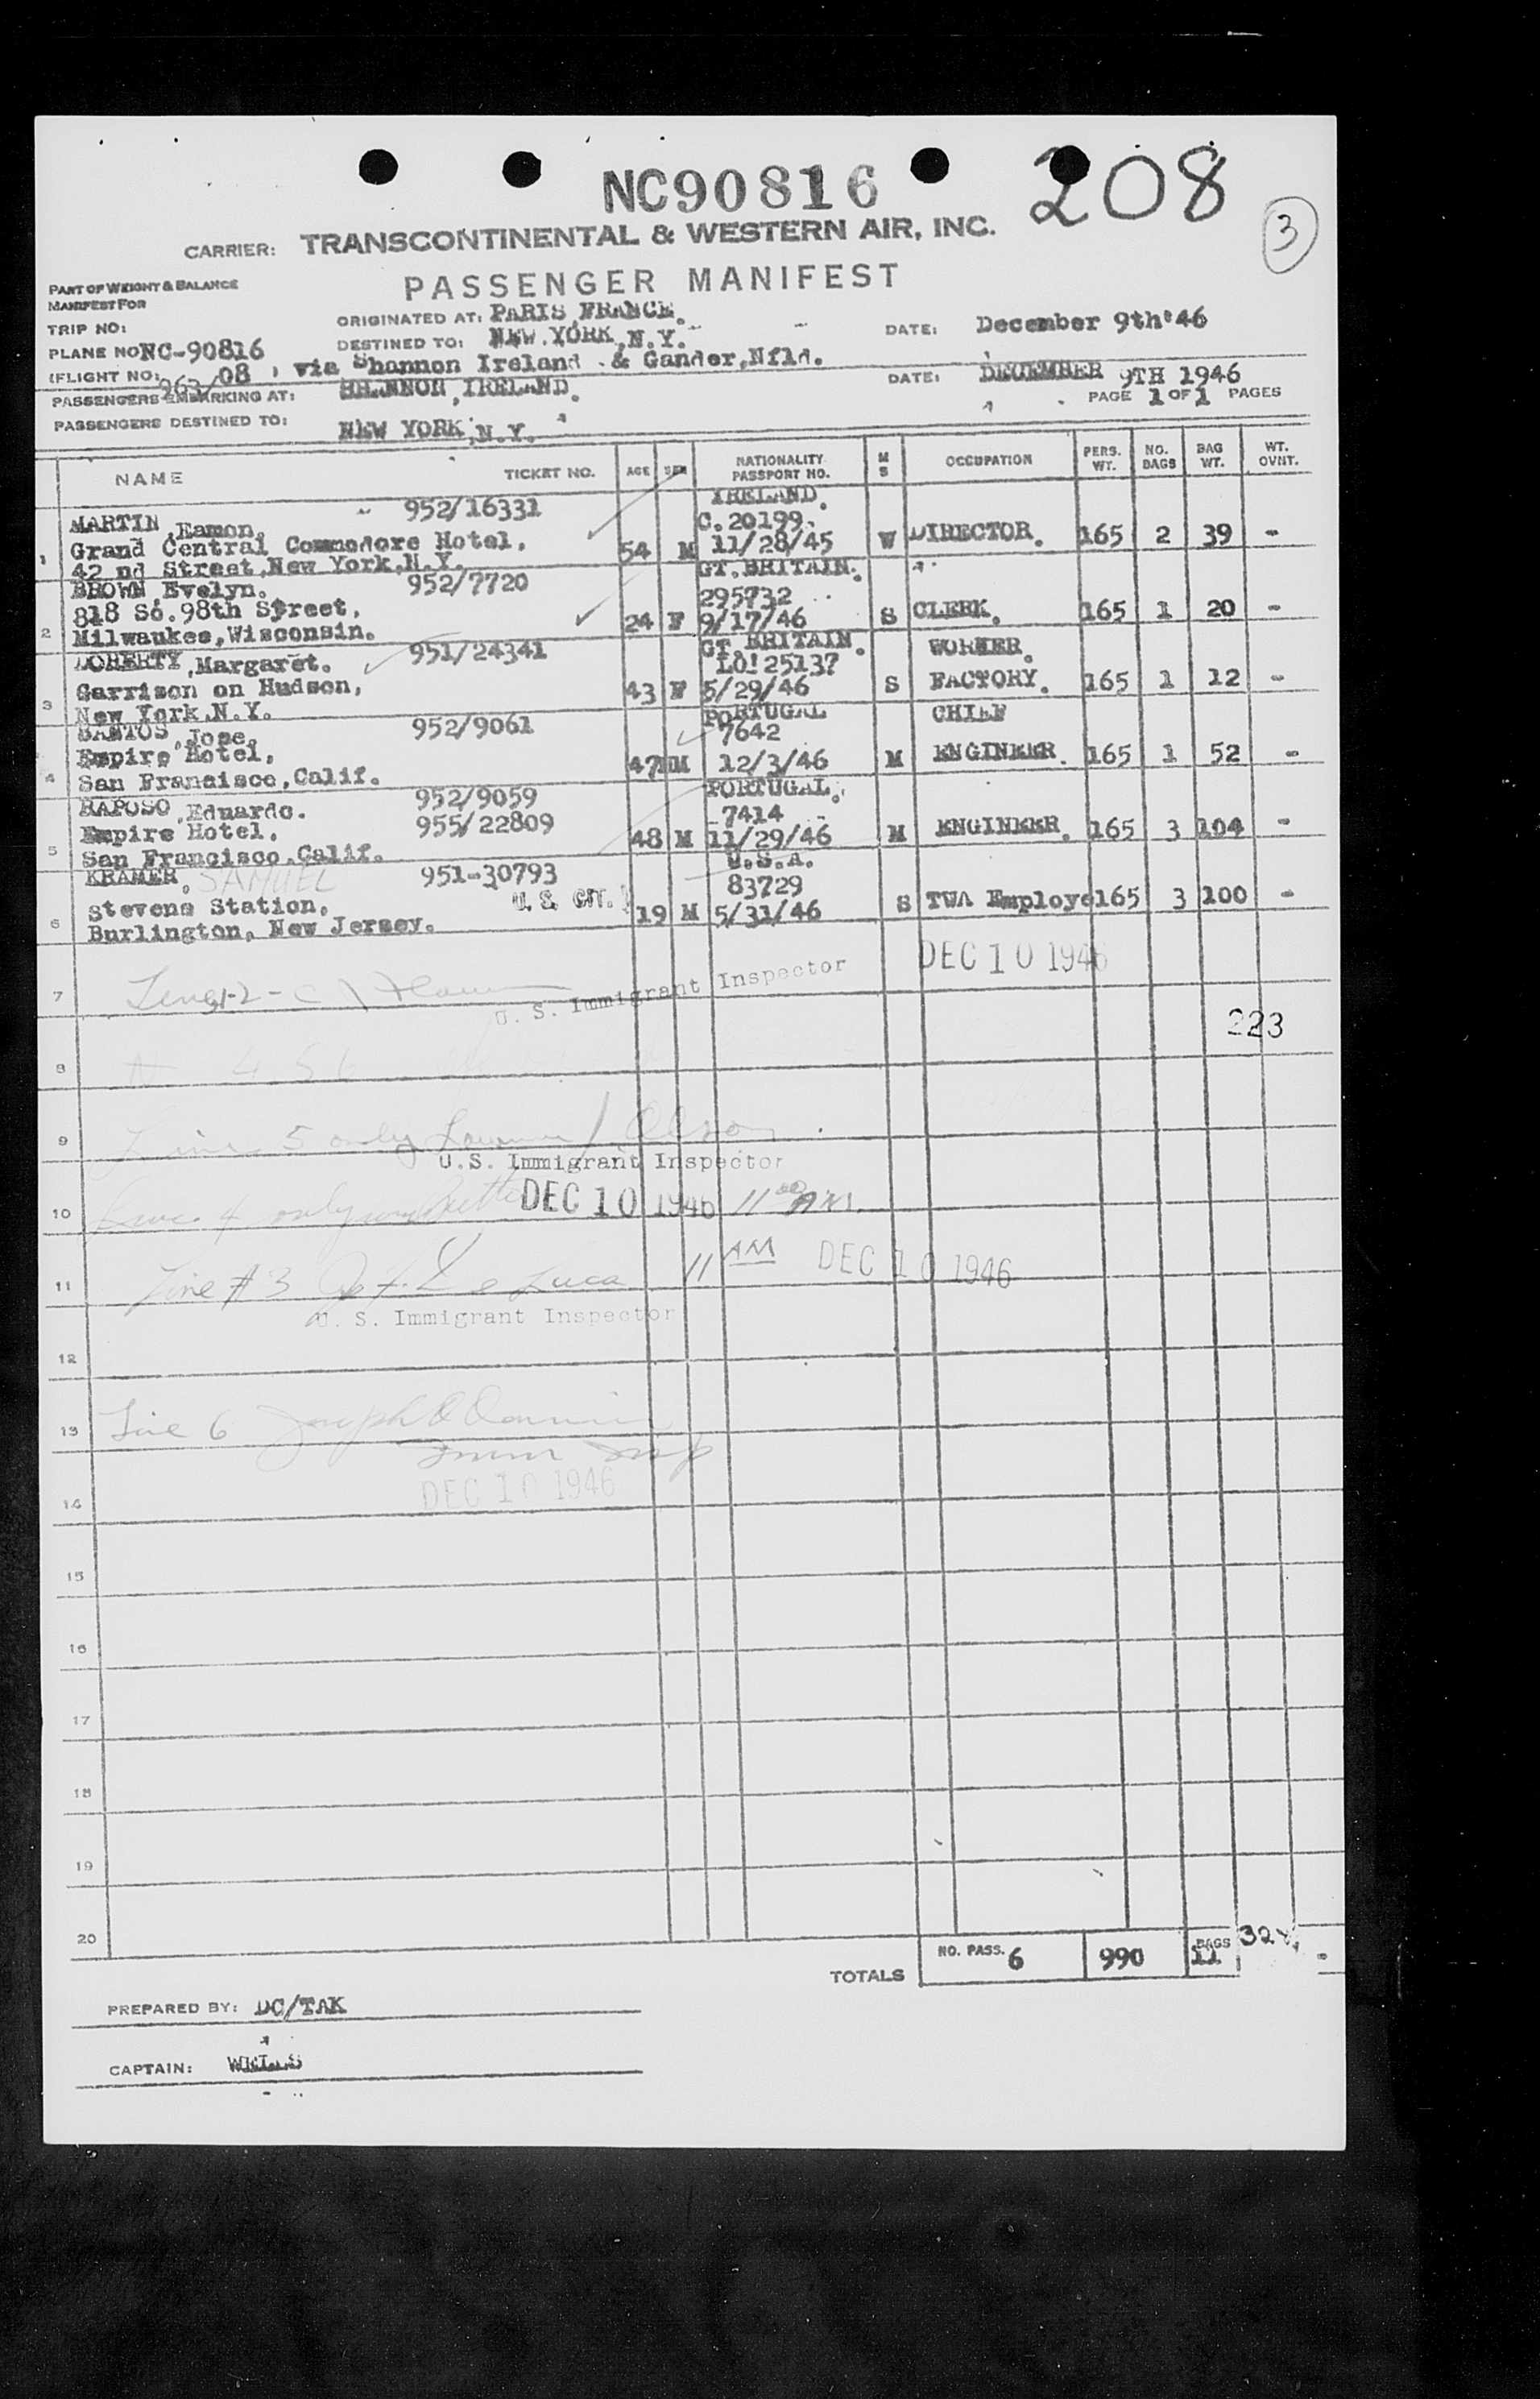 NC90816
208
3
CARRIER: TRANSCONTINENTAL & WESTERN AIR, INC.
PASSENGER MANIFEST
PART OF WEIGHT & BALANCE
MANIFEST FOR
TRIP NO:
ORIGINATED AT: PARIS, FRANCE.
DATE: December 9th'46
PLANE NO NC-90816
DESTINED TO: NEW YORK, N.Y.
(FLIGHT NO: 963/08 , via Shannon Ireland & Gander, Nfld.
PASSENGERS EMBARKING AT: SHANNON, IRELAND.
DATE: DECEMBER 9TH 1946
PASSENGERS DESTINED TO: NEW YORK, N.Y.
PAGE 1 OF 1 PAGES
NAME TICKET NO. AGE SEX NATIONALITY PASSPORT NO. M S OCCUPATION PERS. WT. NO. BAGS BAG WT. WT. OVNT.
MARTIN, Eamon. 952/16331 IRELAND.
Grand Central Commodore Hotel, C.20199.
1 42 nd Street, New York, N.Y. 54 M 11/28/45 W DIRECTOR. 165 2 39 -
BROWN, Evelyn. 952/7720 GT. BRITAIN.
818 So. 98th Street, 295732
2 Milwaukee, Wisconsin. 24 F 9/17/46 S CLERK. 165 1 20 -
DOHERTY, Margaret. 951/24341 GT. BRITAIN. WORKER.
Garrison on Hudson, LO! 25137
3 New York, N.Y. 43 F 5/29/46 S FACTORY. 165 1 12 -
SANTOS, Jose. 952/9061 PORTUGAL CHIEF
Empire Hotel, 7642
4 San Francisco, Calif. 47 M 12/3/46 M ENGINEER. 165 1 52 -
RAPOSO, Eduardo. 952/9059 PORTUGAL.
Empire Hotel, 955/22809 7414
5 San Francisco, Calif. 48 M 11/29/46 M ENGINEER. 165 3 104 -
KRAMER. SAMUEL 951-30793 U.S.A.
Stevens Station, U. S. CIT. 83729
6 Burlington, New Jersey. 19 M 5/31/46 S TWA Employe 165 3 100 -
DEC 10 1946
7
U. S. Immigrant Inspector
223
8
9 Line 5 only
U.S. Immigrant Inspector
10 Line 4 only DEC 10 1946 11 00 AM
11 Line #3 De Luca 11 AM DEC 10 1946
U. S. Immigrant Inspector
12
13 Line 6 Joseph
Imm Insp
DEC 10 1946
14
15
16
17
18
19
20
TOTALS NO. PASS. 6 990 BAGS 11 -
PREPARED BY: DC/TAK
CAPTAIN: WELLS